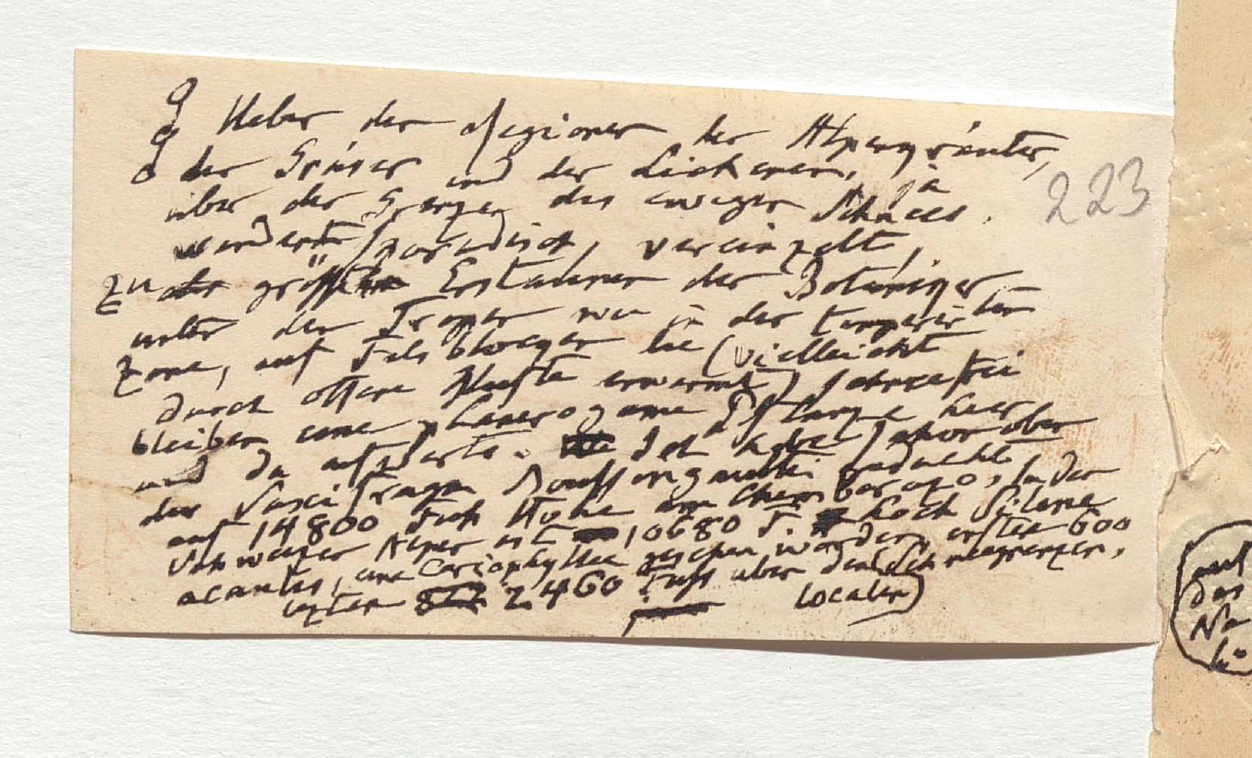 Ueber den Regionen der Alpenkräuter,
der Gräser und der Lichenen, ja
über der Grenzen des ewigen Schnees.
223
wandert sporadisch, vereinzelt,
zu großem Erstaunen der Botaniker
unter den Tropen wie in der temperirten
Zone, auf Felsblöcken die (vielleicht
durch offene Klüfte erwärmt) schneefrei
bleiben eine phanerogame Pflanze hier
und da aufwärts. Ich habe schon oben
der Saxifraga Boussingaulti gedacht
auf 14800 Fuß Höhe am Chimborazo, in den
Schweizer Alpen ist 10680 F. hoch Silene
acaulis, eine Cariophyllee gesehen worden, erstere 600
letztere 2460 Fuß über den Schneegrenzen,
localen)
auf
das